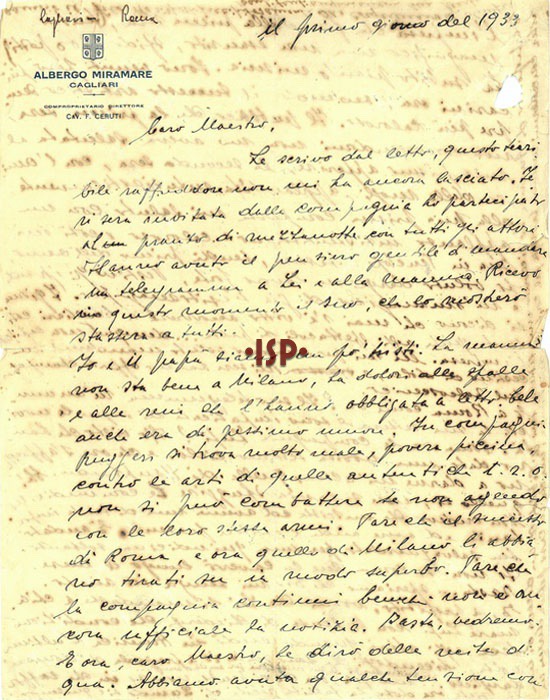 Cagliari - Roma
il primo giorno del 1933
ALBERGO MIRAMARE
CAGLIARI
COMPROPRIETARIO DIRETTORE
CAV. F. CERUTI
Caro Maestro,
Le scrivo dal letto, questo terri
bile raffreddore non mi ha ancora lasciato. Ie
ri sera invitata dalla compagnia ho partecipato
al pranzo di mezzanotte con tutti gli attori.
Hanno avuto il pensiero gentile di mandare
un telegramma a Lei e alla mamma. Ricevo
in questo momento il suo, che lo mostrerò
stasera a tutti.
•ISP•
Io e il papà siamo un po' tristi. La mamma
non sta bene a Milano, ha dolori alle spalle
e alle reni che l'hanno obbligata a letto. Lele
anche era di pessimo umore. In compagnia
Ruggeri si trova molto male, povera piccina,
contro le arti di quelle autentiche t. r. o.
non si può combattere se non agendo
con le loro stesse armi. Pare che il successo
di Roma, e ora quello di Milano li abbia
no tirati su in modo superbo. Pare che
la compagnia continui benchè non è an
cora ufficiale la notizia. Basta, vedremo.
E ora, caro Maestro, le dirò delle recite di
qua. Abbiamo avuta qualche tensione con